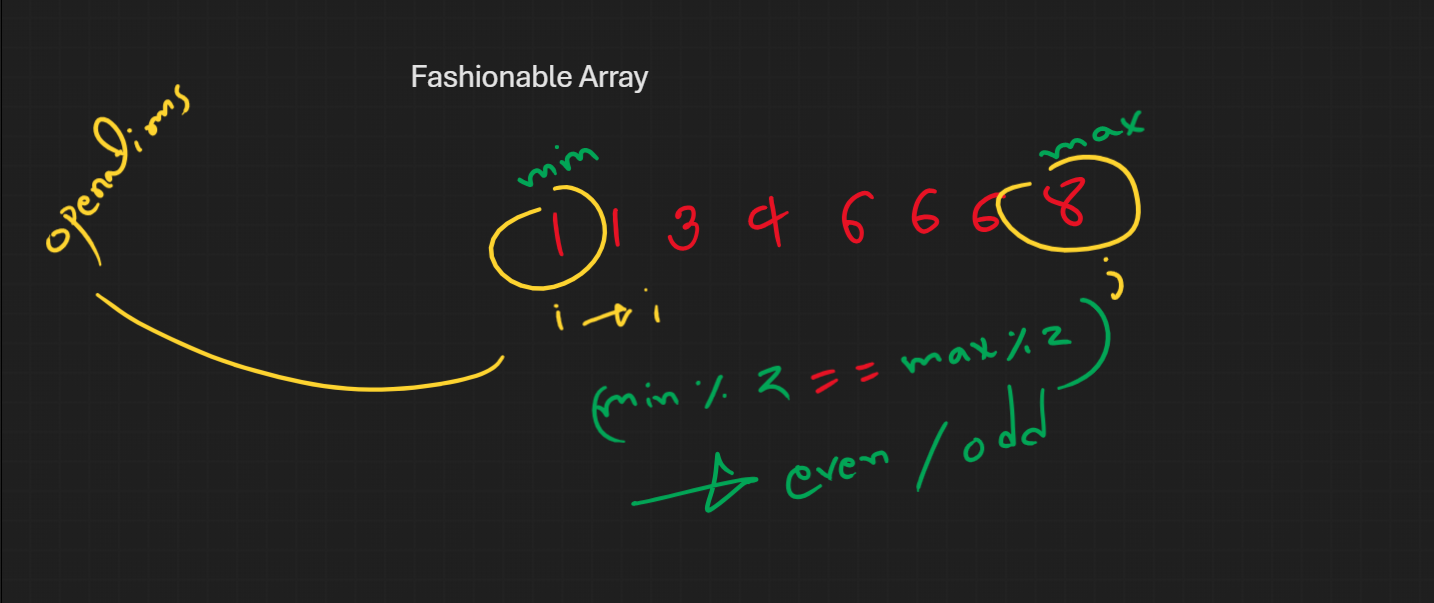 Fashionable Array
min
max
1 1 3 4 6 6 6 8
i → i
j
(min % 2 == max % 2)
→ even / odd